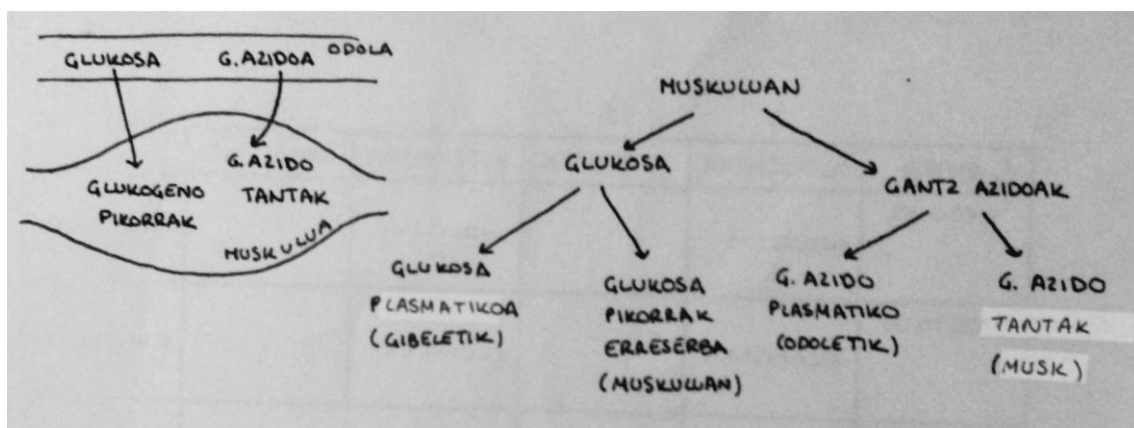 GLUKOSA G. AZIDOA ODOLA
GLUKOGENO
PIKORRAK
G. AZIDO
TANTAK
MUSKULUA
MUSKULUAN
GLUKOSA
GANTZ AZIDOAK
GLUKOSA
PLASMATIKOA
(GIBELETIK)
GLUKOSA
PIKORRAK
ERRESERBA
(MUSKULUAN)
G. AZIDO
PLASMATIKO
(ODOLETIK)
G. AZIDO
TANTAK
(MUSK)